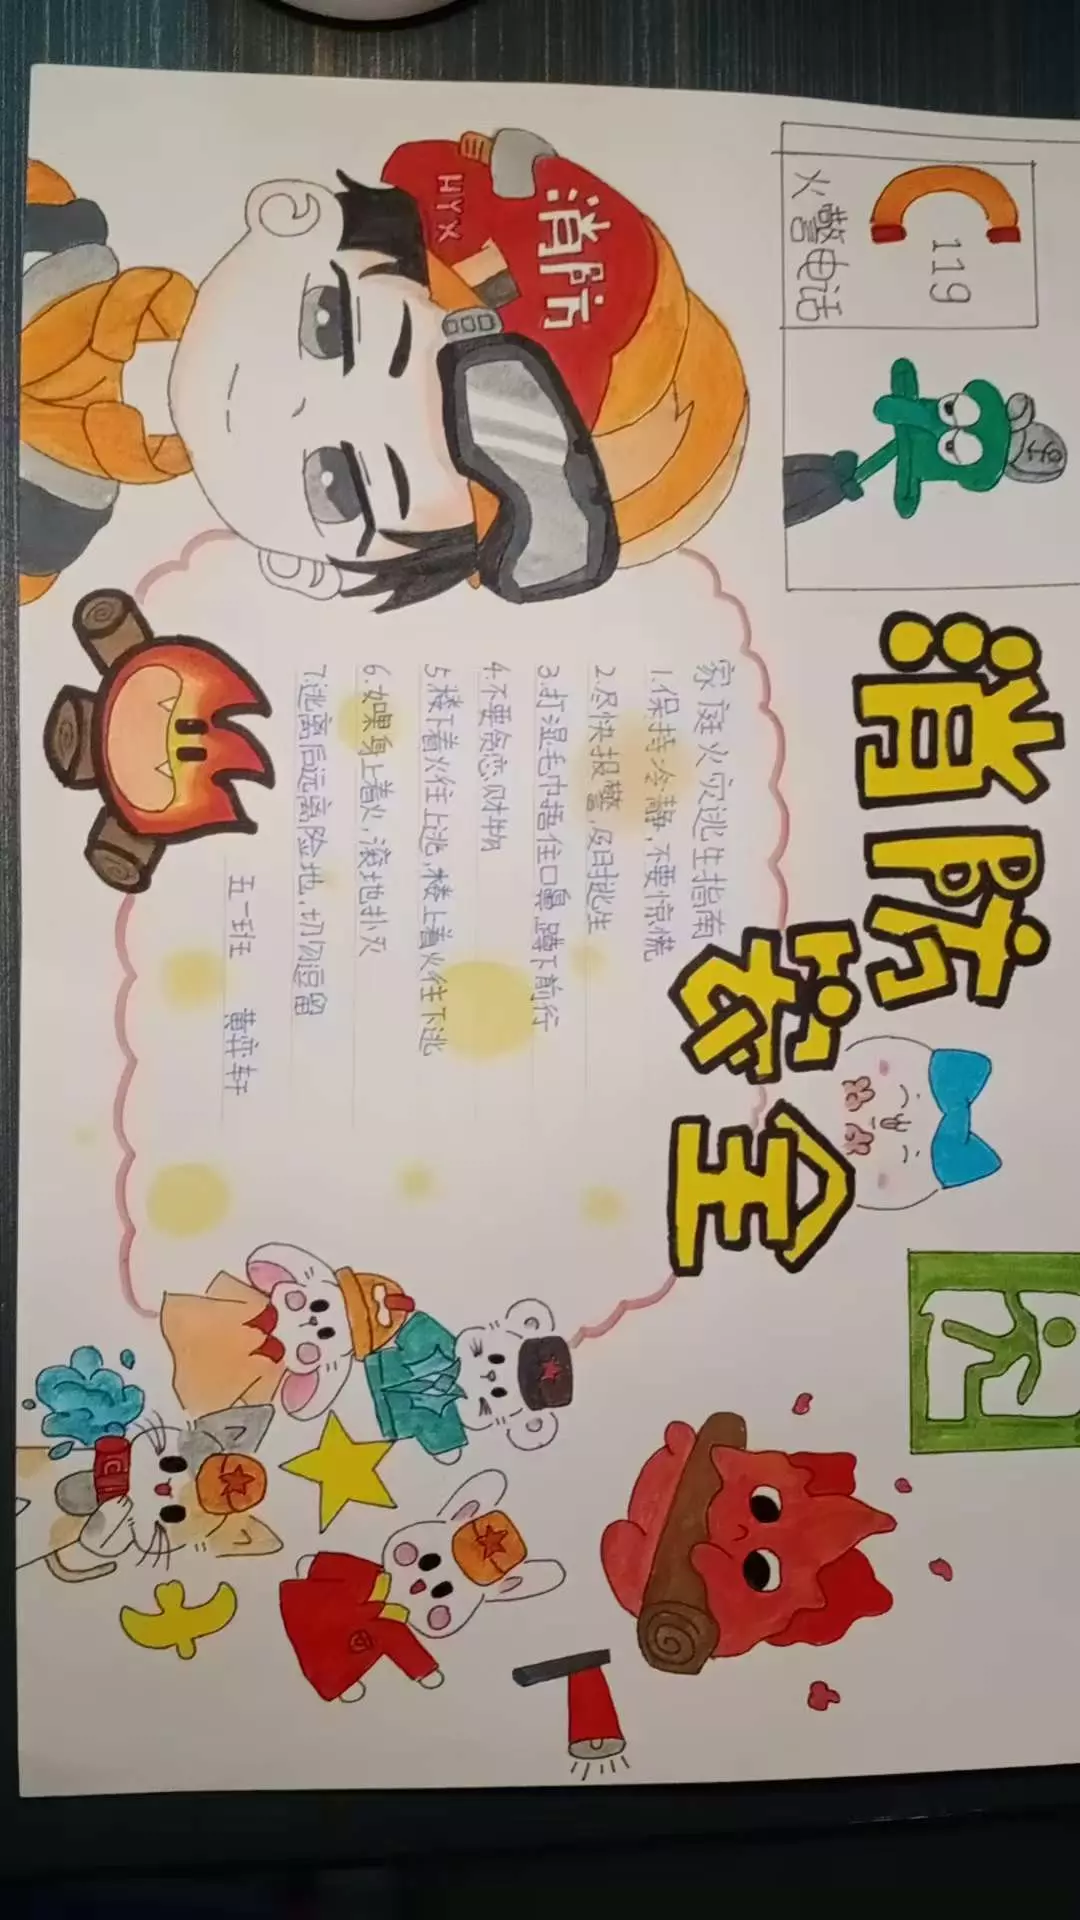 119
火警电话
消防
HYX
消防安全
家庭火灾逃生指南
1.保持冷静,不要惊慌
2.尽快报警,及时逃生
3.打湿毛巾捂住口鼻蹲下前行
4.不要贪恋财物
5.楼下着火往上逃,楼上着火往下逃
6.如果身上着火,滚地扑灭
7.逃离后远离险地,切勿逗留
五一班 黄弈轩